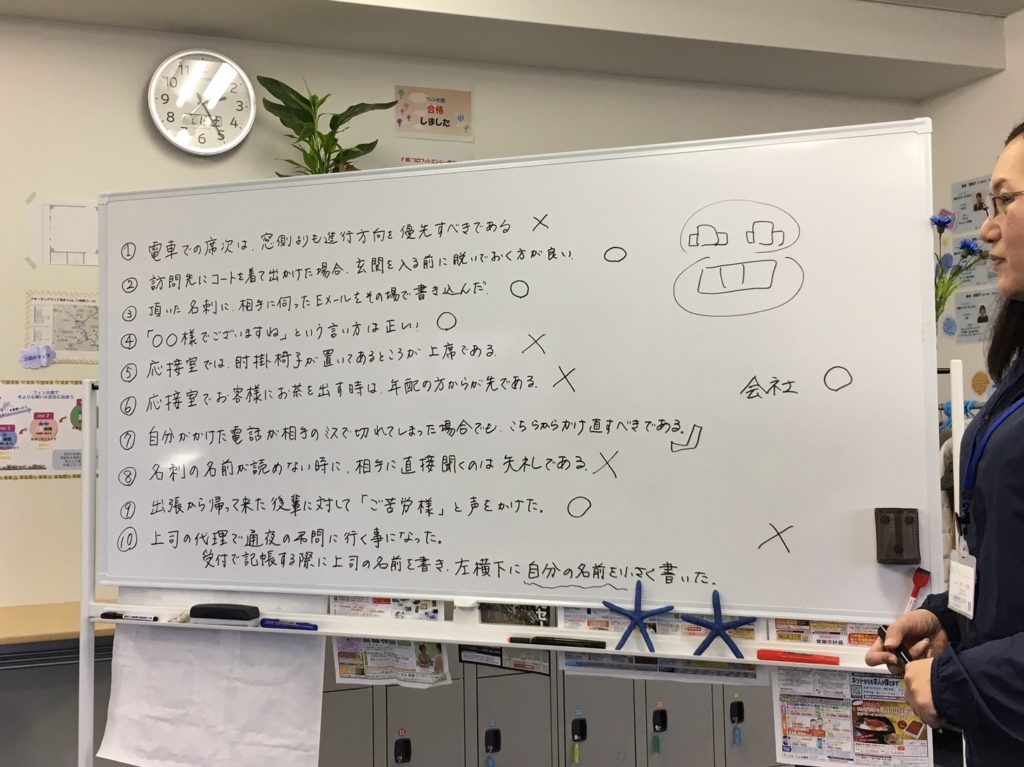 フィン大阪
合格
しました
① 電車での席次は、窓側よりも進行方向を優先すべきである ×
② 訪問先にコートを着て出かけた場合、玄関を入る前に脱いでおく方が良い。 ○
③ 頂いた名刺に、相手に伺ったEメールをその場で書き込んだ。 ○
④ 「○○様でございますね」という言い方は正しい。 ○
⑤ 応接室では、肘掛椅子が置いてあるところが上席である。 ×
⑥ 応接室でお客様にお茶を出す時は、年配の方からが先である。 ×
会社 ○
⑦ 自分がかけた電話が相手のミスで切れてしまった場合でも、こちらからかけ直すべきである。
⑧ 名刺の名前が読めない時に、相手に直接聞くのは失礼である。 ×
⑨ 出張から帰って来た後輩に対して「ご苦労様」と声をかけた。 ○
⑩ 上司の代理で通夜の弔問に行く事になった。
受付で記帳する際に上司の名前を書き、左横下に自分の名前を小さく書いた。 ×